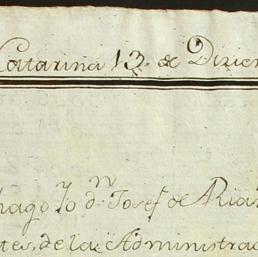 Catarina 13 de Dizien
hago yo dn Josef de Ria
tes de la Administrac